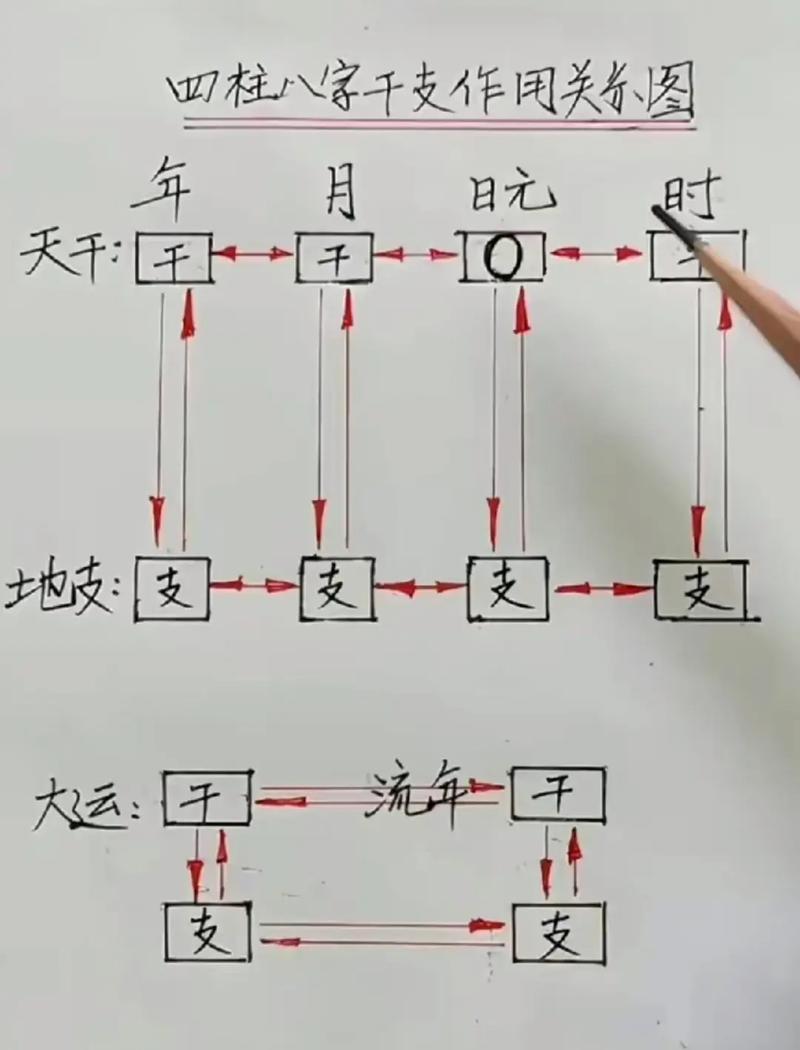 四柱八字干支作用关系图
年 月 日元 时
天干: 干 干 O 干
地支: 支 支 支 支
大运: 干 流年 干
支 支